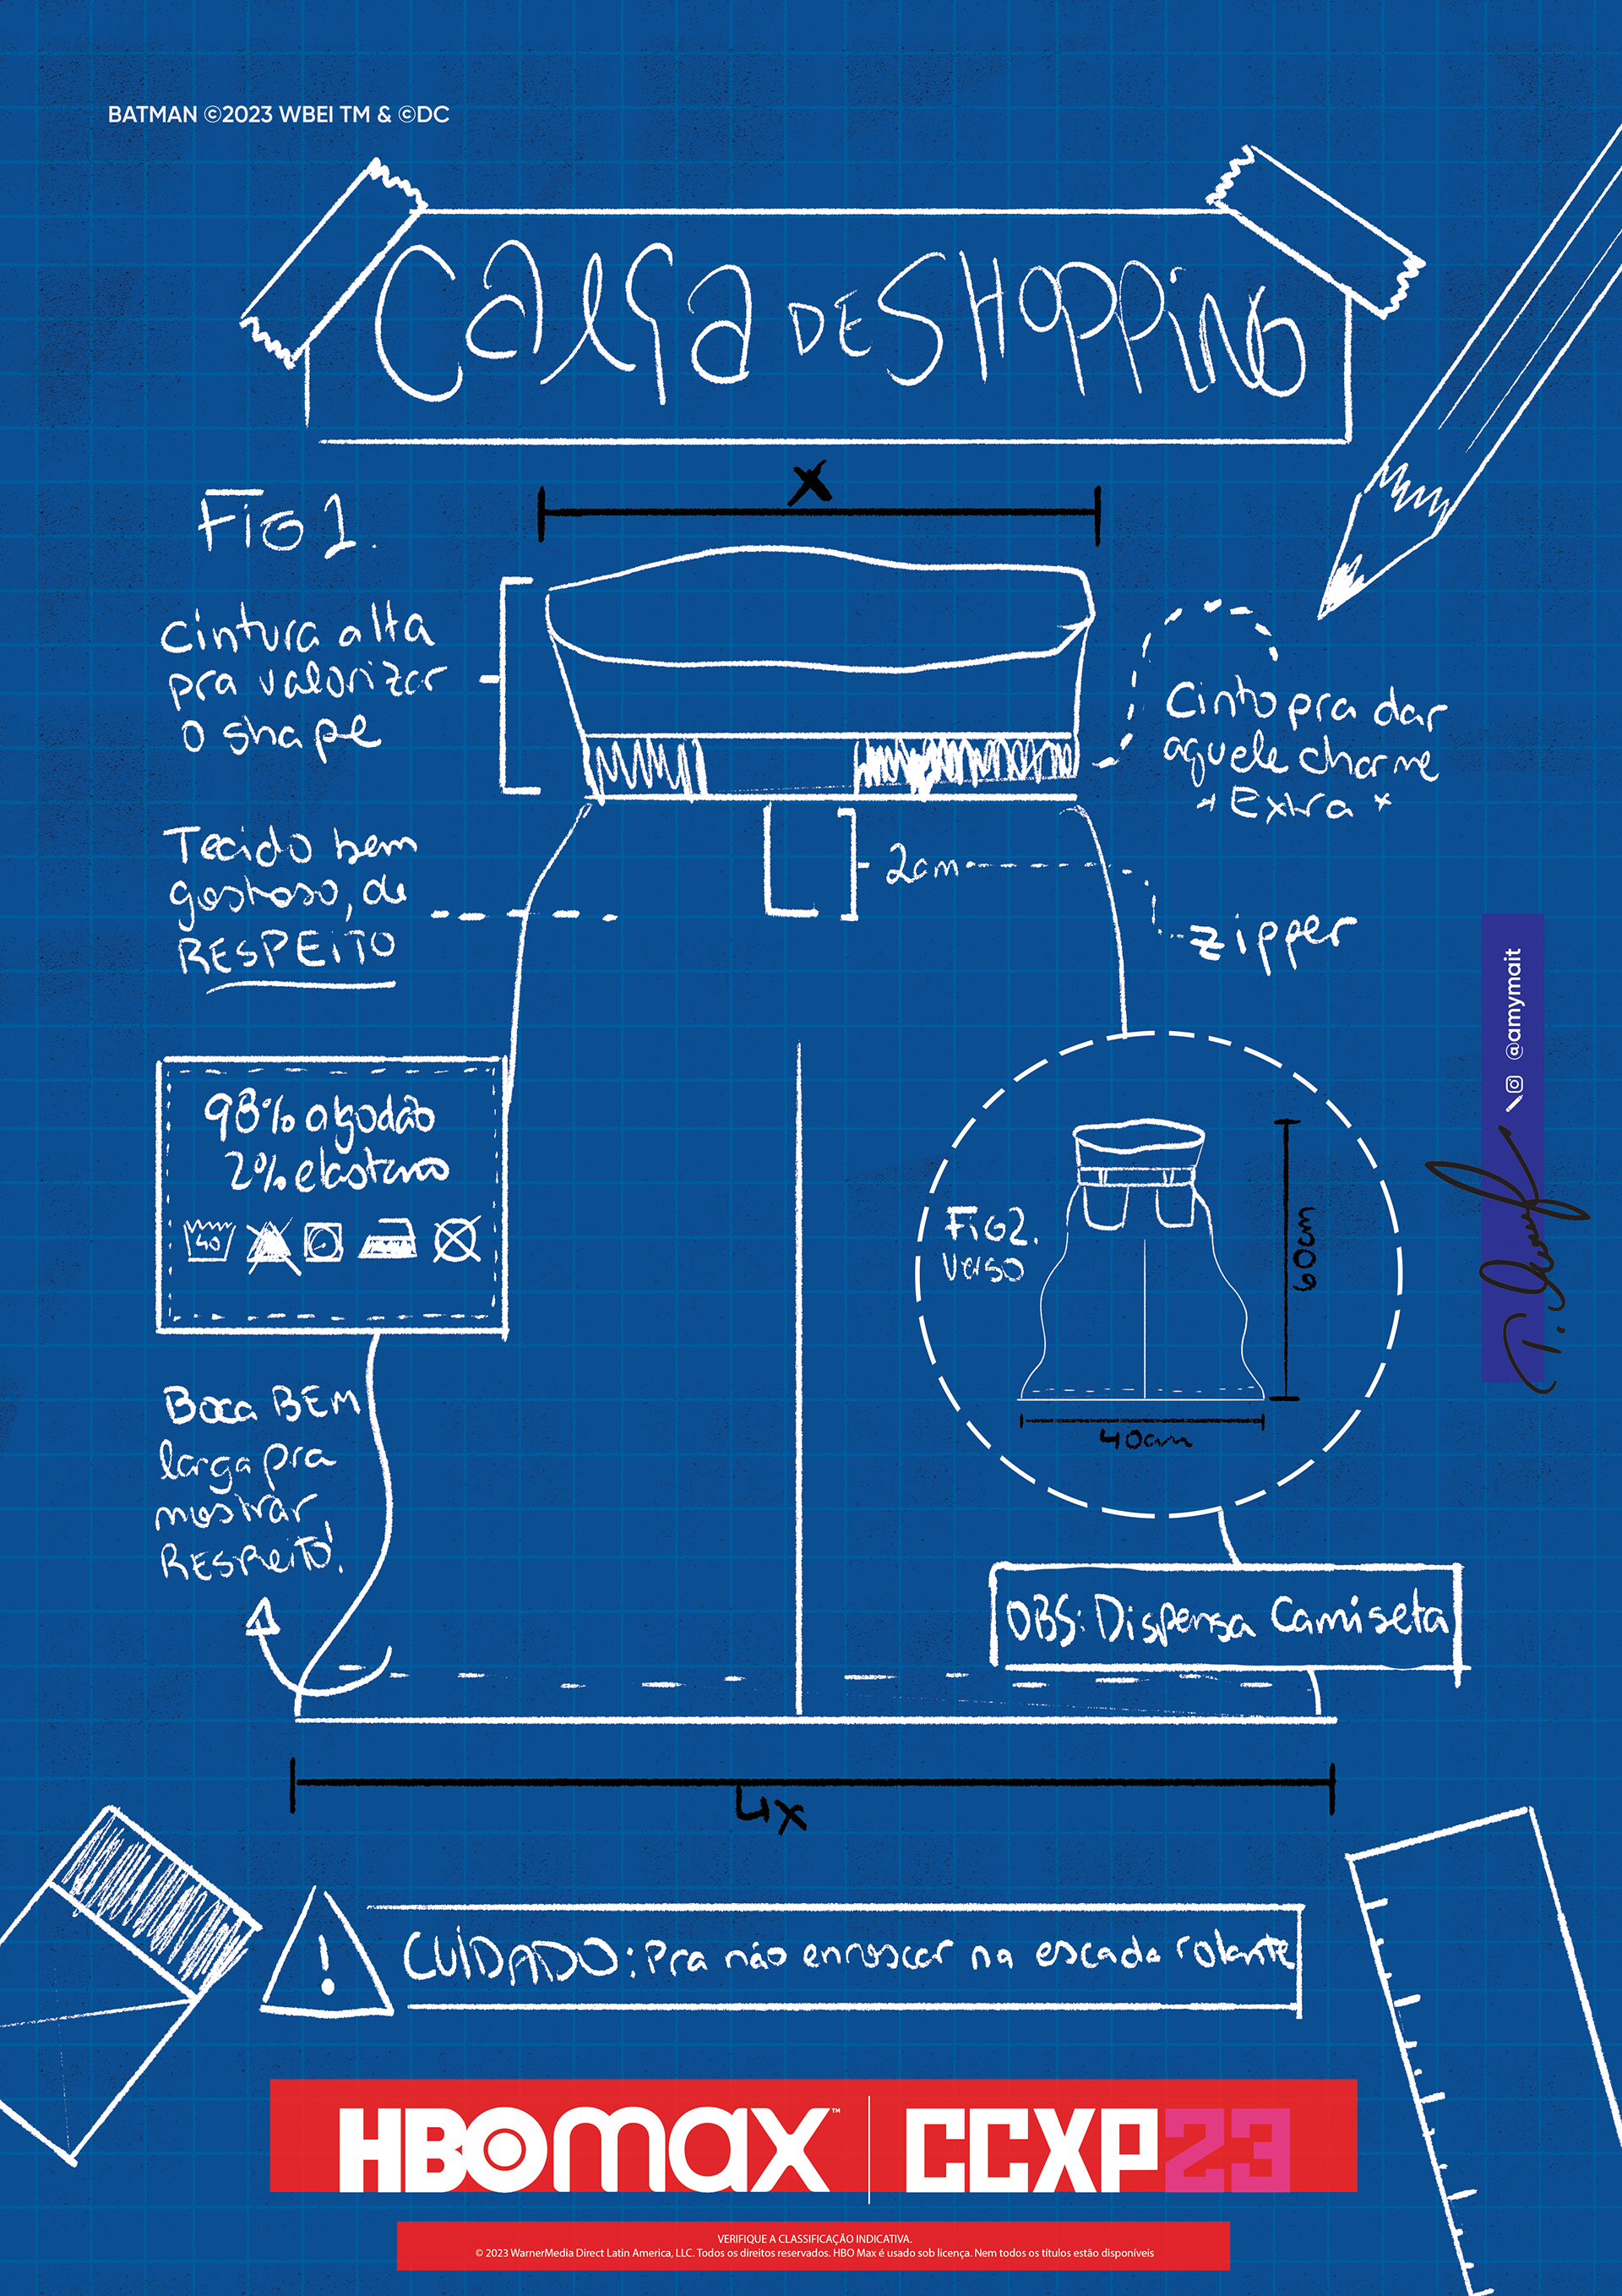 BATMAN ©2023 WBEI TM & ©DC
CALÇA DE SHOPPING
X
FIG 1.
Cintura alta
pra valorizar
o shape
Cinto pra dar
aquele charme
* Extra *
Tecido bem
gostoso, de
RESPEITO
2cm
zipper
@amymait
98% algodão
2% elastano
40
FIG 2.
verso
60cm
40cm
Boca BEM
larga pra
mostrar
RESPEITO!
OBS: Dispensa Camiseta
4x
!
CUIDADO: Pra não enroscar na escada rolante
HBOMAX™ | CCXP23
VERIFIQUE A CLASSIFICAÇÃO INDICATIVA.
© 2023 WarnerMedia Direct Latin America, LLC. Todos os direitos reservados. HBO Max é usado sob licença. Nem todos os títulos estão disponíveis